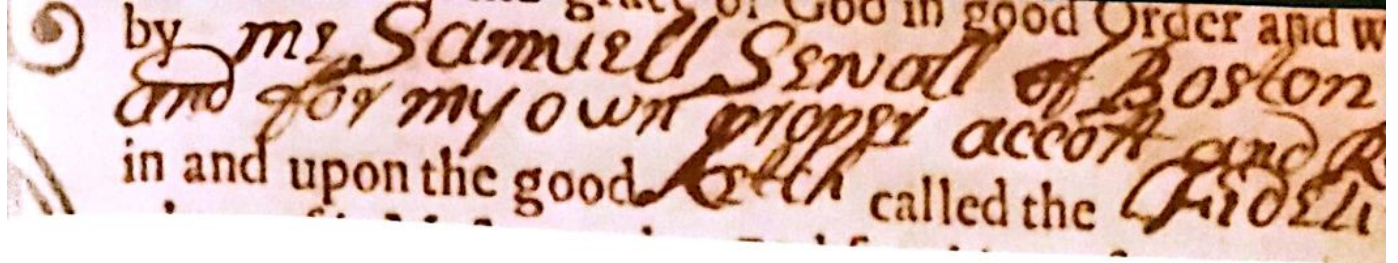 of God in good Order and
by me Samuell Sewall of Boston
and for my own proper accott and
in and upon the good Ketch called the Fideli